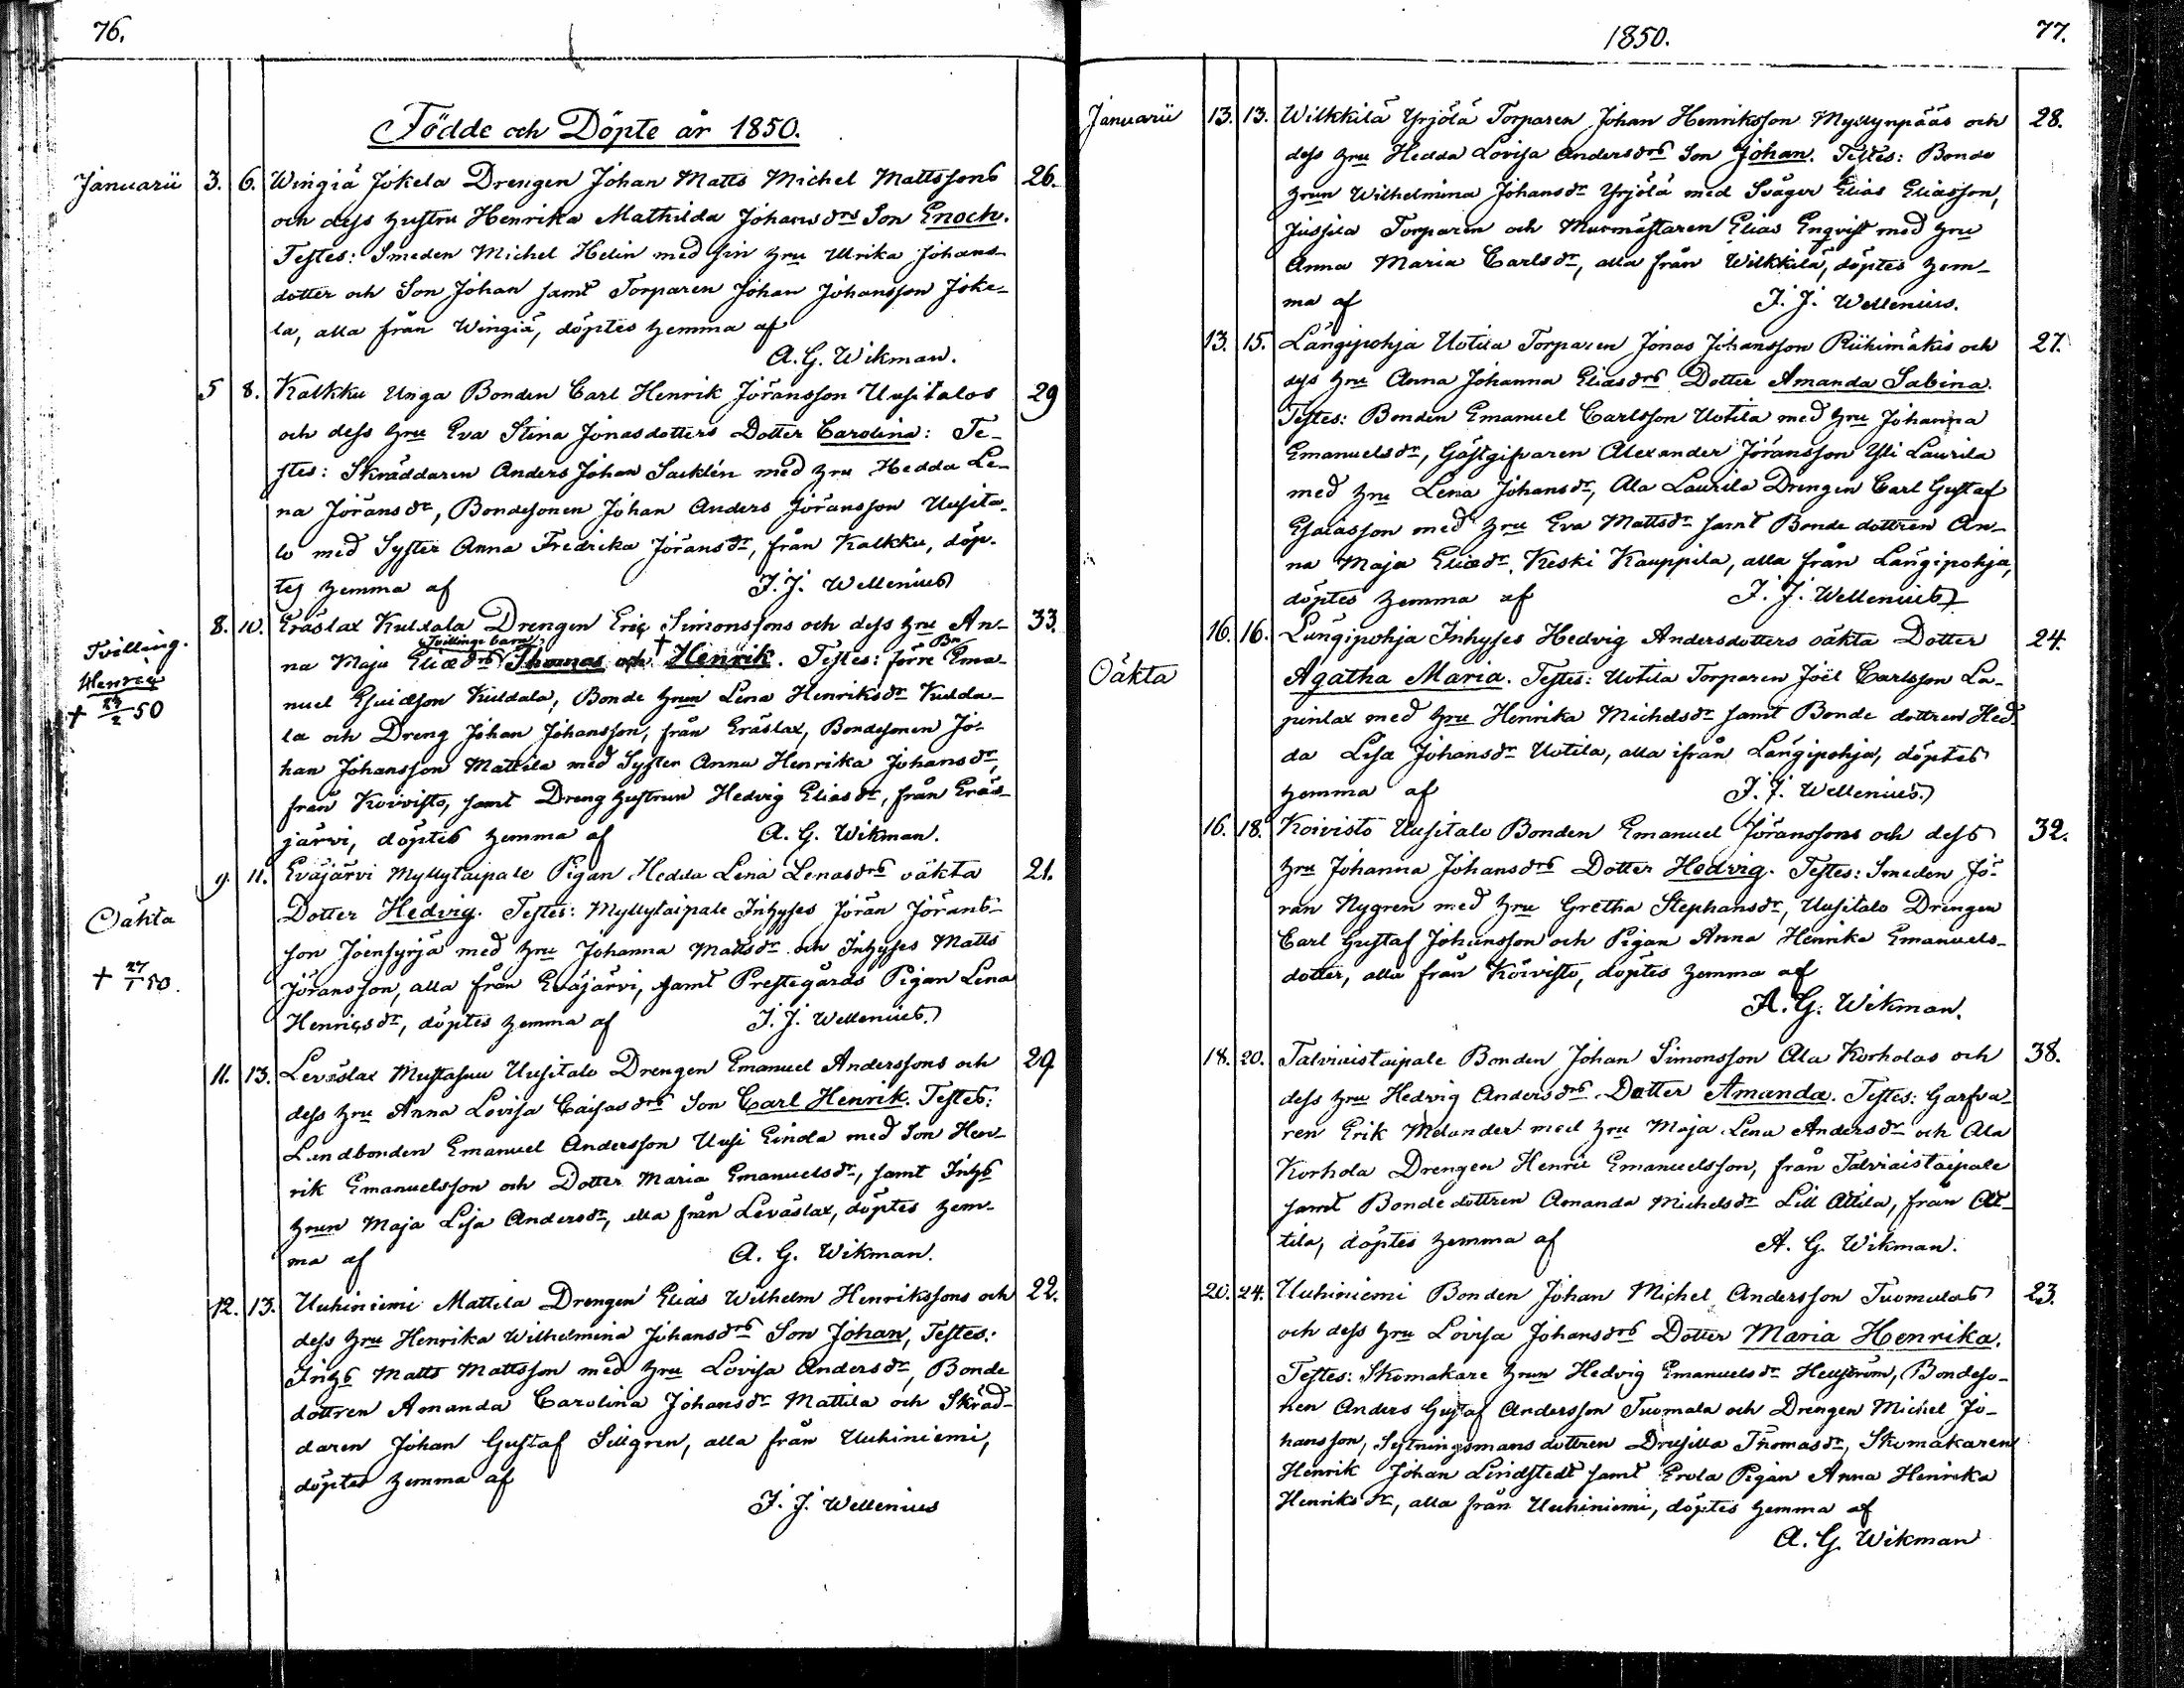 76.
Födde och Döpte år 1850.
Januarii 3. 6. Wingiä Jokela Drengen Johan Matts Michel Mattssons 26.
och dess hustru Henrika Mathilda Johansdrs Son Enoch.
Testes: Smeden Michel Helin med sin hru Ulrika Johans-
dotter och Son Johan samt Torparen Johan Johansson Joke-
la, alla från Wingiä, döptes hemma af
A. G. Wikman.
5 8. Kalkku Unga Bonden Carl Henrik Jöransson Uusitalos 29
och dess hru Eva Stina Jonasdotters Dotter Carolina: Te-
stes: Skräddaren Anders Johan Sacklén med hru Hedda Le-
na Jöransdr, Bondesonen Johan Anders Jöransson Uusita-
lo med Syster Anna Fredrika Jöransdr, från Kalkku, döp-
tes hemma af J. J. Wellenius
8. 10. Eräslax Kuldala Drengen Eric Simonssons och dess hru An- 33.
Tvilling. na Maja Eliædrs Tvillinge barn Thomas och † Henrik. Testes: förre Bn Ema-
Henric
† 23/2 50
nuel Esaidson Kuldala, Bonde hrun Lena Henriksdr Kulda-
la och Dreng Johan Johansson, från Eräslax, Bondesonen Jo-
han Johansson Mattila med Syster Anna Henrika Johansdr,
från Koivisto, samt Dreng hustrun Hedvig Eliasdr, från Eräs-
järvi, döptes hemma af A. G. Wikman.
9. 11. Eväjärvi Myllytaipale Pigan Hedda Lena Lenasdrs oäkta 21.
Oäkta Dotter Hedvig. Testes: Myllytaipale Inhyses Jöran Jörans-
son Joensyrjä med hru Johanna Mattsdr och Inhyses Matts
† 27/1 50. Jöransson, alla från Eväjärvi, samt Prestegårds Pigan Lena
Henricsdr, döptes hemma af J. J. Wellenius.
11. 13. Leväslax Mustasuu Uusitalo Drengen Emanuel Anderssons och 29
dess hru Anna Lovisa Caisasdrs Son Carl Henrik. Testes:
Landbonden Emanuel Andersson Uusi Einola med Son Hen-
rik Emanuelsson och Dotter Maria Emanuelsdr, samt Inhs
hrun Maja Lisa Andersdr, alla från Leväslax, döptes hem-
ma af A. G. Wikman.
12. 13. Uuhiniemi Mattila Drengen Elias Wilhelm Henrikssons och 22.
dess hru Henrika Wilhelmina Johansdrs Son Johan, Testes:
Inhs Matts Mattsson med hru Lovisa Andersdr, Bonde
dottren Amanda Carolina Johansdr Mattila och Skräd-
daren Johan Gustaf Sillgren, alla från Uuhiniemi,
döptes hemma af
J. J. Wellenius
1850. 77.
Januarii 13. 13. Wilkkilä Yrjölä Torparen Johan Henriksson Myllynpääs och 28.
dess hru Hedda Lovisa Andersdrs Son Johan. Testes: Bonde
hrun Wilhelmina Johansdr Yrjölä med Svåger Elias Eliasson,
Jussila Torparen och Murmästaren Elias Enqvist med hru
Anna Maria Carlsdr, alla från Wilkkilä, döptes hem-
ma af J. J. Wellenius.
13. 15. Längipohja Uotila Torparen Jonas Johansson Riihimäkis och 27.
dess hru Anna Johanna Eliasdrs Dotter Amanda Sabina.
Testes: Bonden Emanuel Carlsson Uotila med hru Johanna
Emanuelsdr, Gästgifvaren Alexander Jöransson Yli Laurila
med hru Lena Johansdr, Ala Laurila Drengen Carl Gustaf
Esaiasson med hru Eva Mattsdr samt Bonde dottren An-
na Maja Eliædr. Keski Kauppila, alla från Längipohja,
döptes hemma af J. J. Wellenius
16. 16. Längipohja Inhyses Hedvig Andersdotters oäkta Dotter 24.
Oäkta Agatha Maria. Testes: Uotila Torparen Joël Carlsson La-
pinlax med hru Henrika Michelsdr samt Bonde dottren Hed-
da Lisa Johansdr Uotila, alla ifrån Längipohja, döptes
hemma af J. J. Wellenius.
16. 18. Koivisto Uusitalo Bonden Emanuel Jöranssons och dess 32.
hru Johanna Johansdrs Dotter Hedvig. Testes: Smeden Jö-
ran Nygren med hru Gretha Stephansdr, Uusitalo Drengen
Carl Gustaf Johansson och Pigan Anna Henrika Emanuels-
dotter, alla från Koivisto, döptes hemma af
A. G. Wikman.
18. 20. Talviaistaipale Bonden Johan Simonsson Ala Korholas och 38.
dess hru Hedvig Andersdrs Dotter Amanda. Testes: Garfva-
ren Erik Melander med hru Maja Lena Andersdr och Ala
Korhola Drengen Henric Emanuelsson, från Talviaistaipale
samt Bondedottren Amanda Michelsdr Lill Attila, från At-
tila, döptes hemma af A. G. Wikman.
20. 24. Uuhiniemi Bonden Johan Michel Andersson Tuomulas 23.
och dess hru Lovisa Johansdrs Dotter Maria Henrika.
Testes: Skomakare hrun Hedvig Emanuelsdr Hellström, Bondeso-
nen Anders Gustaf Andersson Tuomala och Drengen Michel Jo-
hansson, Sytningsmans dottren Drusilla Thomasdr, Skomakaren
Henrik Johan Lindstedt samt Erola Pigan Anna Henrika
Henriksdr, alla från Uuhiniemi, döptes hemma af
A. G. Wikman